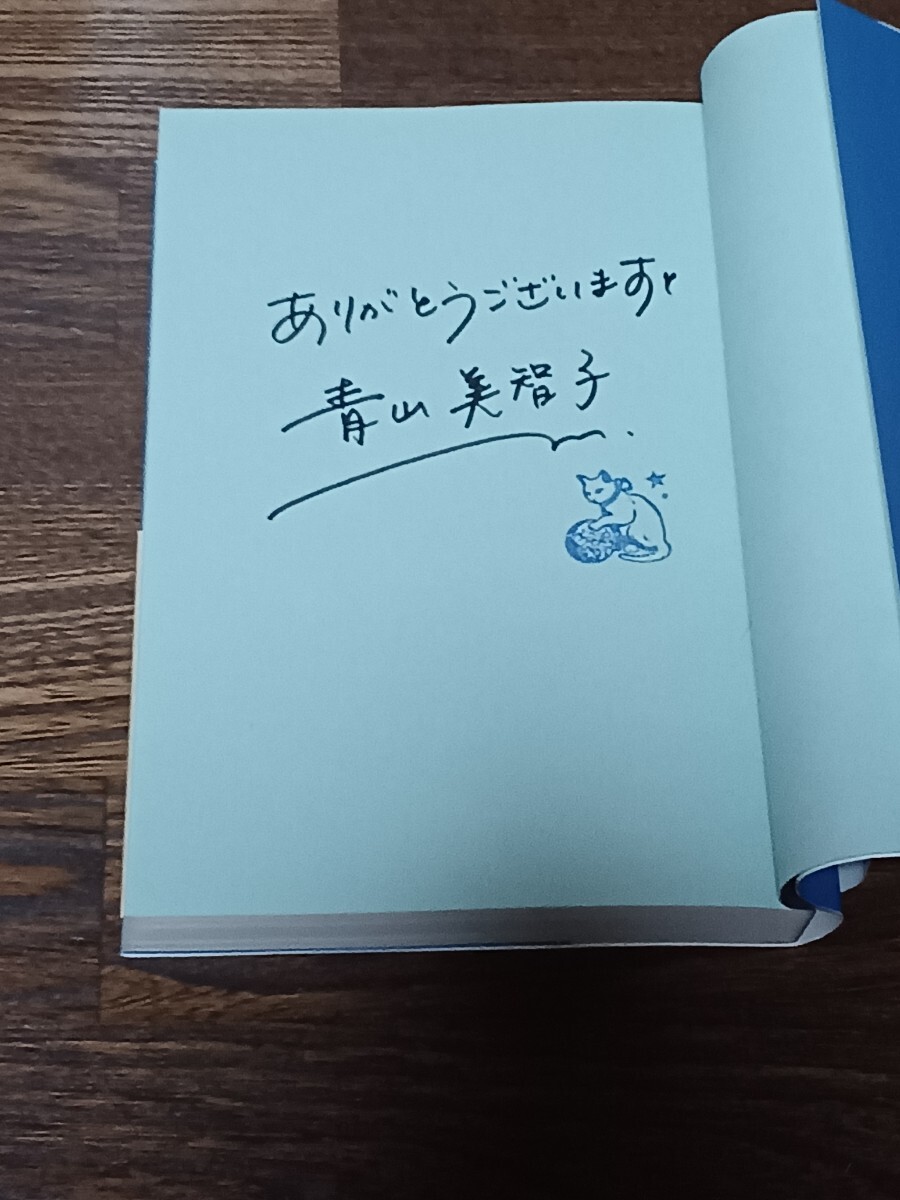 ありがとうございます
青山美智子